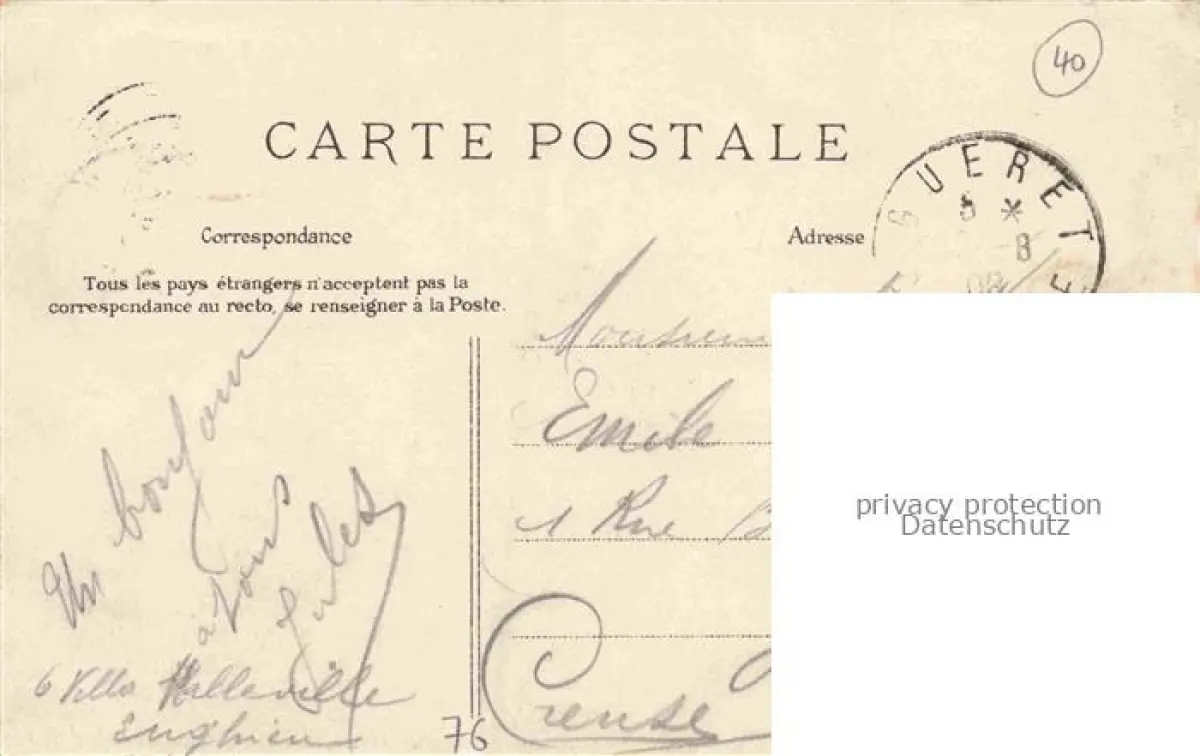 40
CARTE POSTALE
GUERET
8
Correspondance
Adresse
Tous les pays étrangers n'acceptent pas la
correspondance au recto, se renseigner à la Poste.
Monsieur
Emile
1 Rue
Creuse
Un bonjour
a tous
Jules
6 Villa Malleville
Enghien
76
privacy protection
Datenschutz